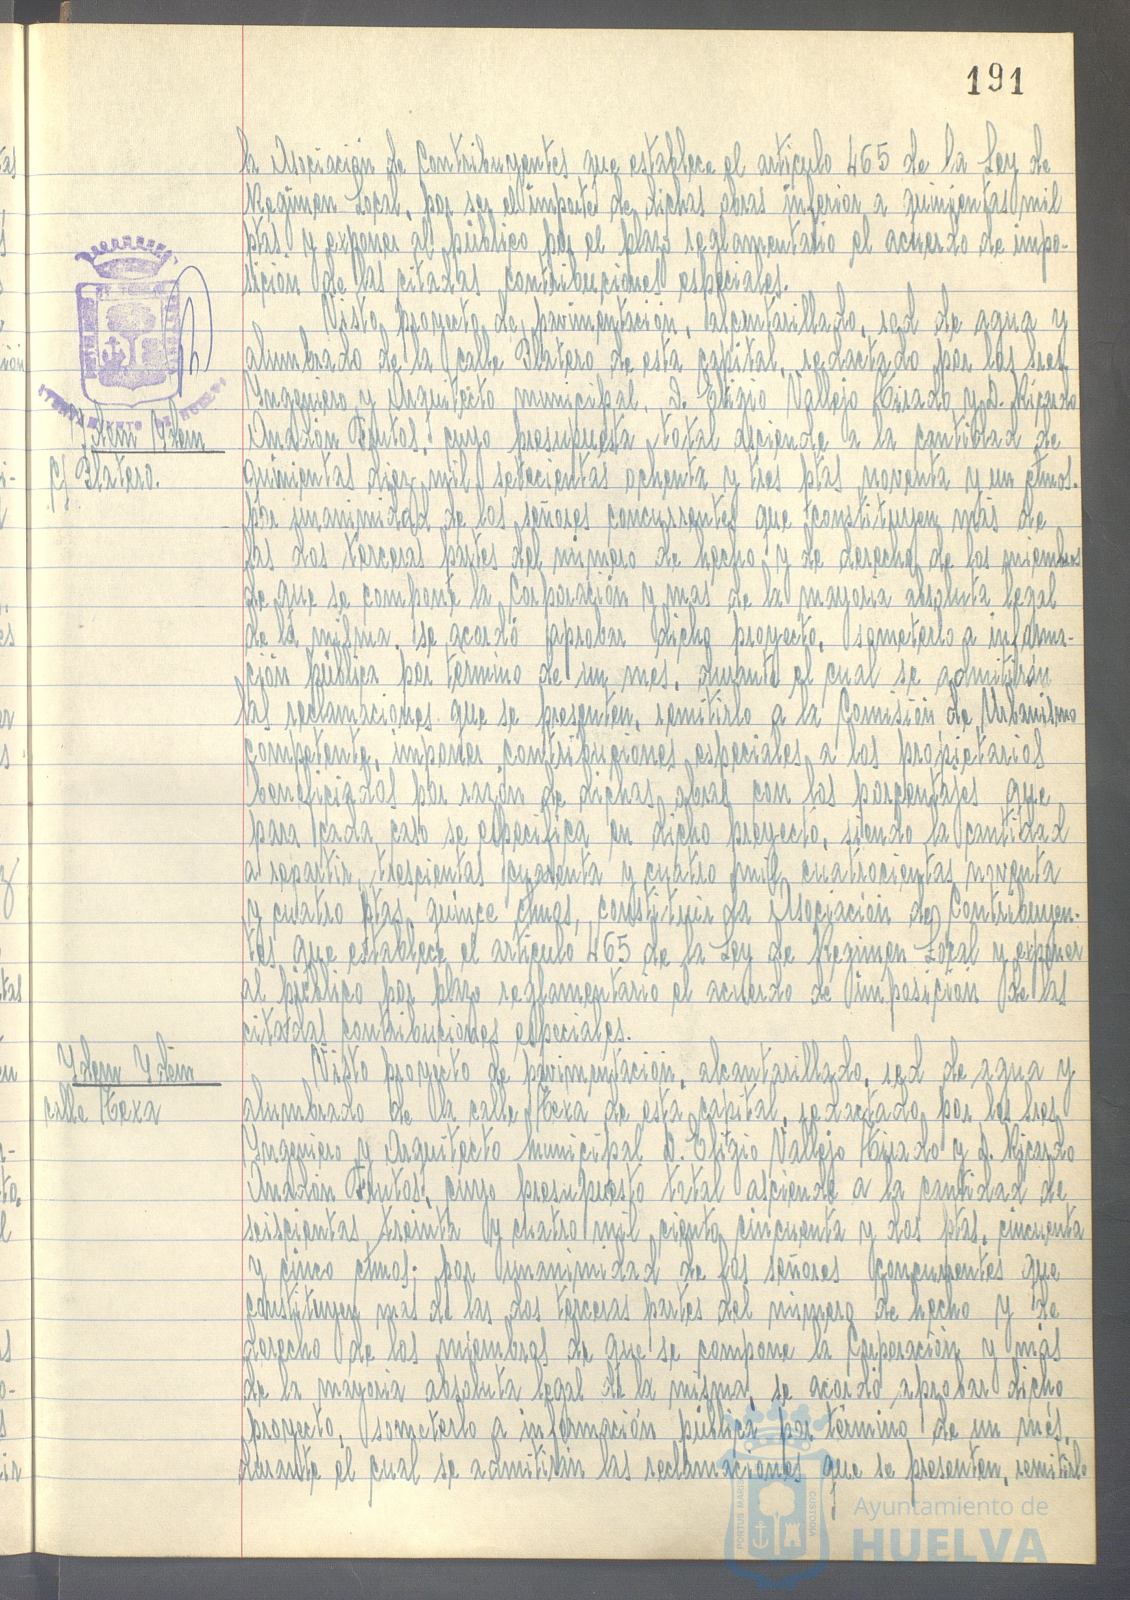 191
la Asociación de Contribuyentes que establece el artículo 465 de la Ley de
Régimen Local, por ser el importe de dichas obras inferior a quinientas mil
ptas y exponer al público por el plazo reglamentario el acuerdo de impo-
sición de las citadas contribuciones especiales.
Visto proyecto de pavimentación, alcantarillado, red de agua y
alumbrado de la calle Platero de esta capital, redactado por los Sres
Ingeniero y Arquitecto municipal, D. Eligio Vallejo Tirado y D. Ricardo
Ydem Ydem
Anadón Frutos, cuyo presupuesto total asciende a la cantidad de
c/ Platero.
quinientas diez mil setecientas ochenta y tres ptas noventa y un ctmos.
por unanimidad de los señores concurrentes que constituyen más de
las dos terceras partes del número de hecho y de derecho de los miembros
de que se compone la Corporación y mas de la mayoría absoluta legal
de la misma, se acordó aprobar dicho proyecto, someterlo a informa-
ción pública por termino de un mes, durante el cual se admitirán
las reclamaciones que se presenten, remitirlo a la Comisión de Urbanismo
competente, imponer contribuciones especiales a los propietarios
beneficiados por razón de dichas obras con los porcentajes que
para cada caso se especifica en dicho proyecto, siendo la cantidad
a repartir, trescientas cuarenta y cuatro mil cuatrocientas noventa
y cuatro ptas quince ctmos, constituir la Asociación de Contribuyen-
tes que establece el artículo 465 de la Ley de Régimen Local y exponer
al público por plazo reglamentario el acuerdo de imposición de las
citadas contribuciones especiales.
Ydem Ydem
Visto proyecto de pavimentación, alcantarillado, red de agua y
calle
alumbrado de la calle de esta capital, redactado por los sres
Ingeniero y Arquitecto Municipal D. Eligio Vallejo Tirado y D. Ricardo
Anadón Frutos, cuyo presupuesto total asciende a la cantidad de
seiscientas treinta y cuatro mil ciento cincuenta y dos ptas. cincuenta
y cinco ctmos; por unanimidad de los señores concurrentes que
constituyen mas de las dos terceras partes del número de hecho y de
derecho de los miembros de que se compone la Corporación y más
de la mayoria absoluta legal de la misma, se acordó aprobar dicho
proyecto, someterlo a información pública por término de un més,
durante el cual se admitirán las reclamaciones que se presenten, remitirlo
PORTUS MARIS
CUSTODIA
Ayuntamiento de
HUELVA